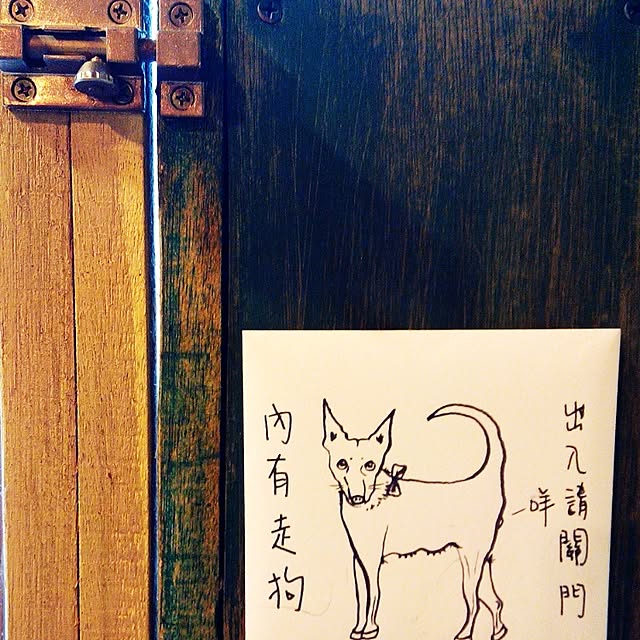 出入請關門
一咩
內有走狗